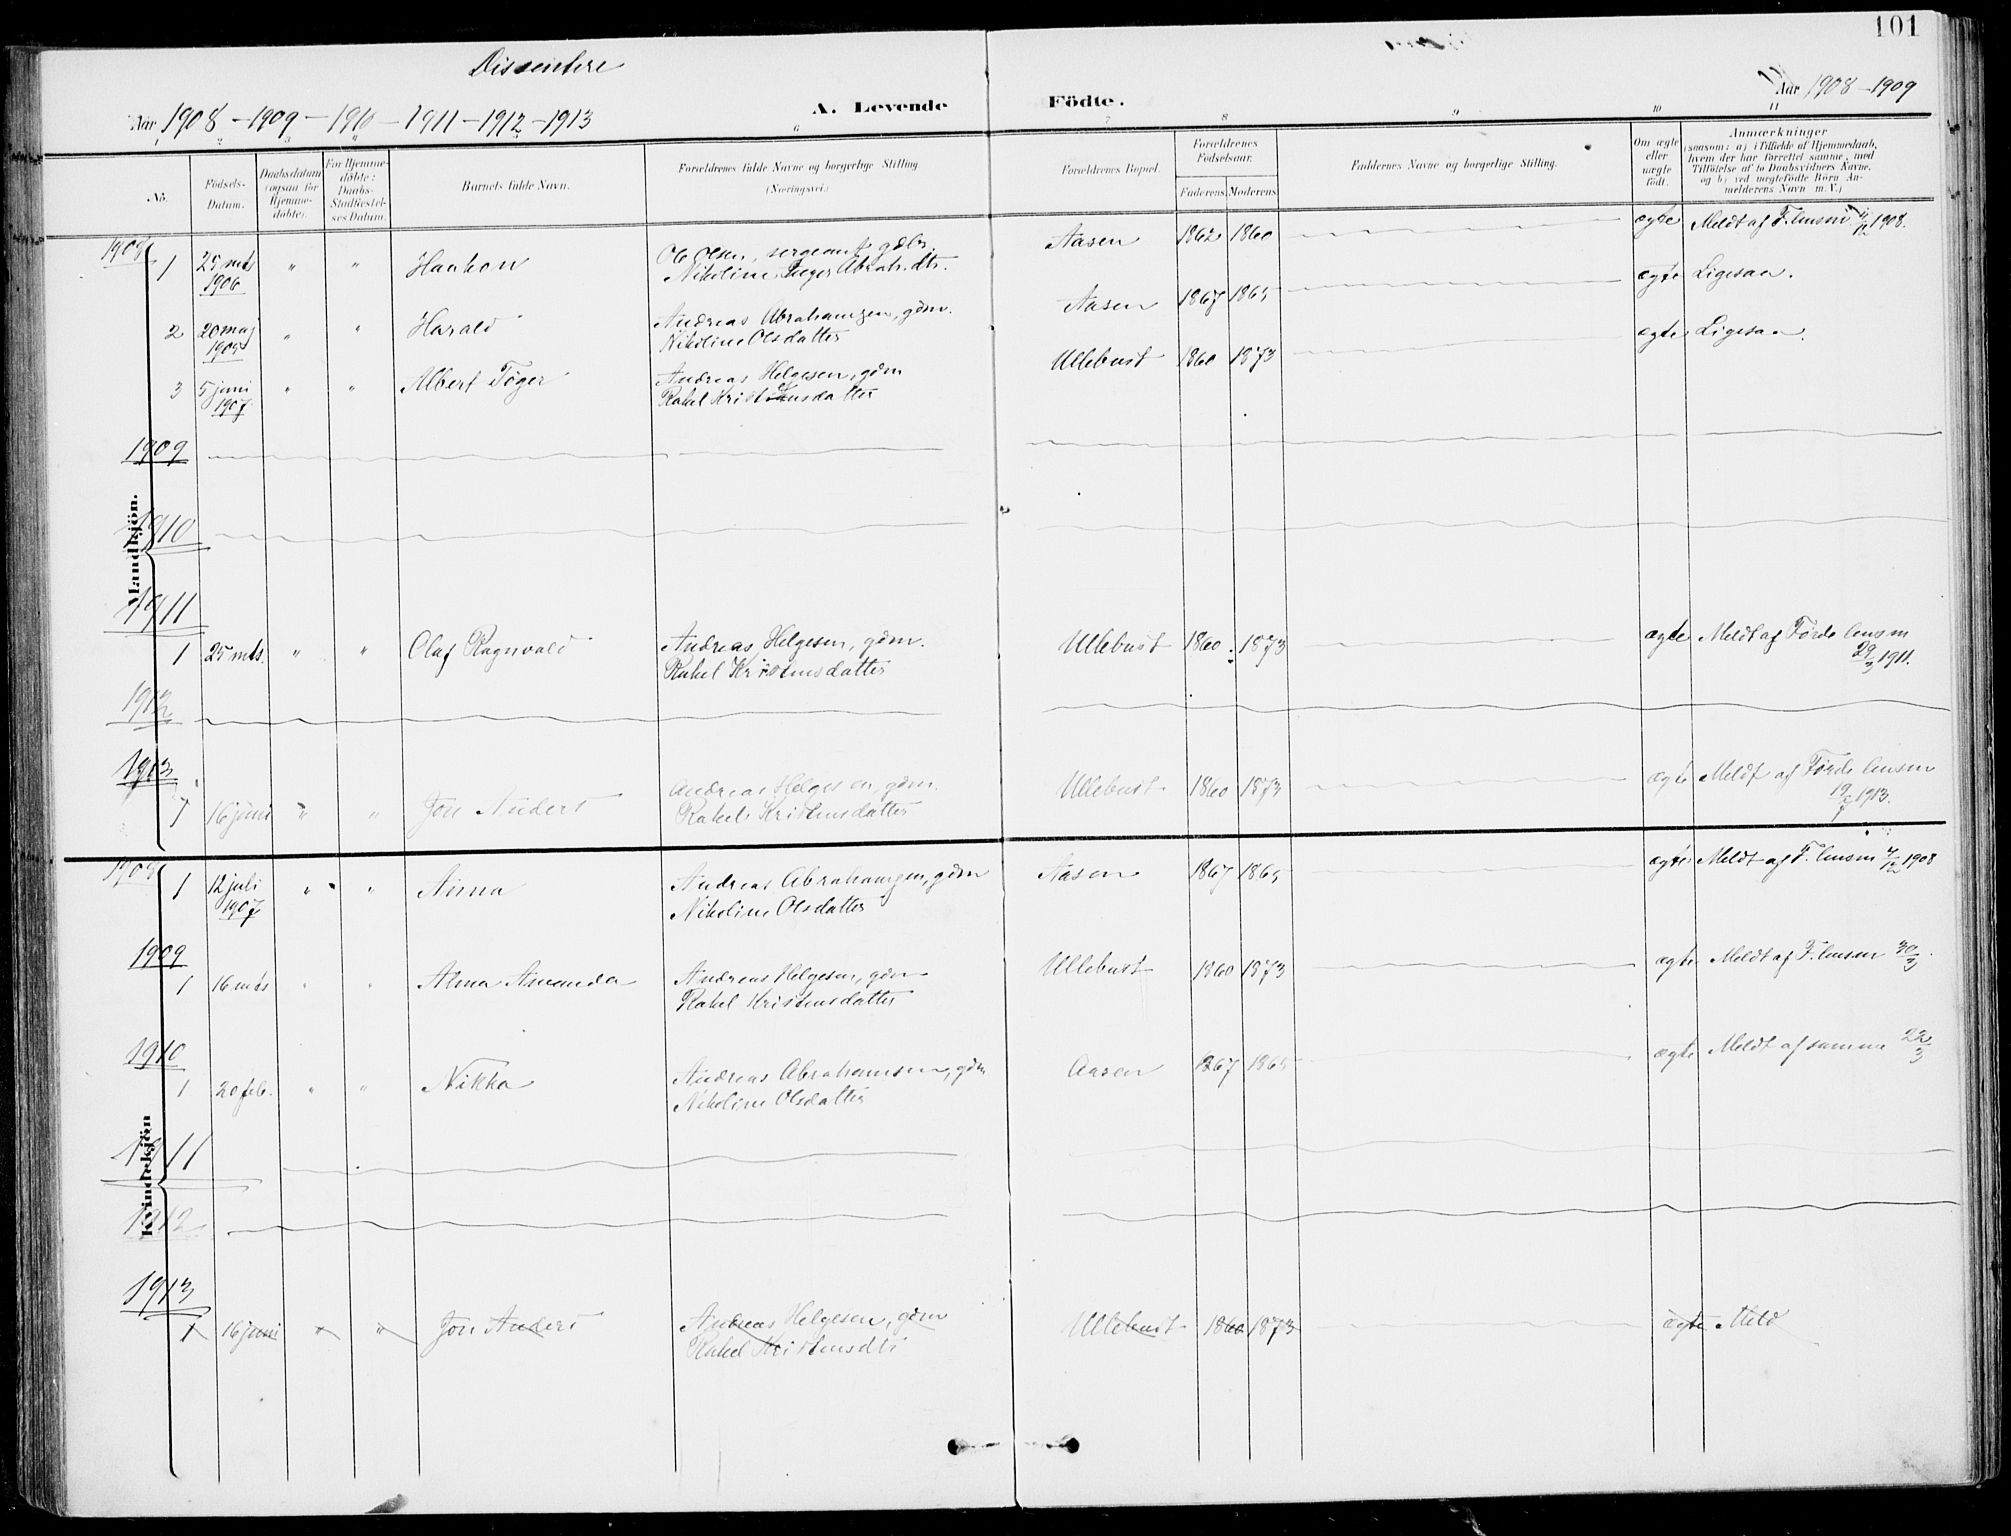 101
Dissentere
Aar 1908 - 1909 - 1910 - 1911 - 1912 - 1913
A. Levende
Födte.
Aar 1908 - 1909
1 2 3 4 6
7 8 9 10 11
No.
Födsels-
Datum.
Daabsdatum
(ogsaa for
Hjemme-
döbte).
For Hjemme-
döbte:
Daabs-
Stadfæstel-
ses Datum.
Barnets fulde Navn.
Forældrenes fulde Navne og borgerlige Stilling
(Næringsvei.)
Forældrenes Bopæl.
Forældrenes
Födselsaar.
Faderens. Moderens.
Faddernes Navne og borgerlige Stilling.
Om ægte
eller
uægte
födt.
Anmærkninger
(saasom: a) i Tilfælde af Hjemmedaab,
hvem der har forrettet samme, med
Tilföielse af to Daabsvidners Navne,
og b) ved uægtefödte Börn An-
melderens Navn m. V.)
Mandkjön.
1908
1 25 mts 1906 " " Haakon
Ole Olsen, sergeant, gdbr.
Nikoline Inger Abrah.dtr.
Aasen 1862 1860 ægte Meldt af F. lensm 4/12 1908.
2 20 maj 1905 " " Harald
Andreas Abrahamsen, gdm.
Nikoline Olsdatter
Aasen 1867 1865 ægte Ligesaa.
3 5 juni 1907 " " Albert Töger
Andreas Helgesen, gdm
Rakel Kristensdatter
Ullebust 1860 1873 ægte Ligesaa.
1909
1910
1911
1 25 mts. " " Olaf Ragnvald
Andreas Helgesen, gdm.
Rakel Kristensdatter
Ullebust 1860 1873 ægte Meldt af Førde lensm
29/3 1911.
1912
1913
1 16 juni " " Jon Anders
Andreas Helgesen, gdm.
Rakel Kristensdatter
Ullebust 1860 1873 ægte Meldt af Førde lensm
19/7 1913.
Kvindekjön
1908
1 12 juli 1907 " " Anna
Andreas Abrahamsen, gdm
Nikoline Olsdatter
Aasen 1867 1865 ægte Meldt af F. lensm 4/12 1908
1909
1 16 mts " " Alma Amanda
Andreas Helgesen, gdm
Rakel Kristensdatter
Ullebust 1860 1873 ægte Meldt af F. lensm 30/3.
1910
1 20 feb. " " Nikka
Andreas Abrahamsen, gdm
Nikoline Olsdatter
Aasen 1867 1865 ægte Meldt af samme 22/3
1911
1912
1913
1 16 juni " " Jon Anders
Andreas Helgesen, gdm
Rakel Kristensdtr
Ullebust 1860 1873 ægte Meld